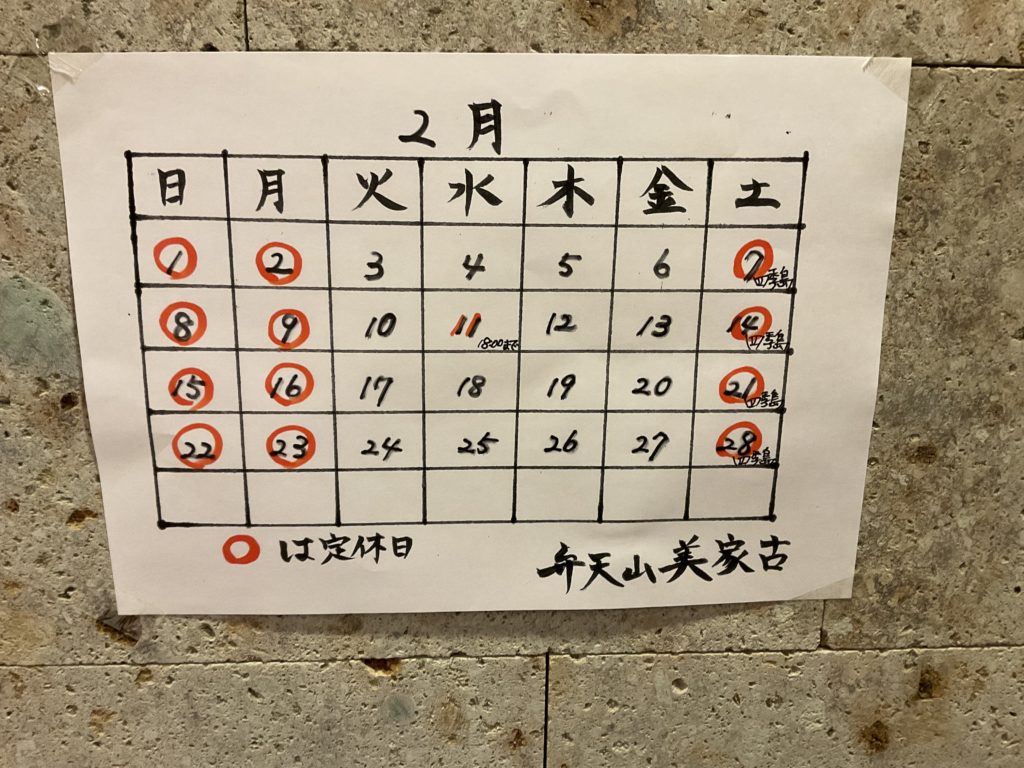 2月
日 月 火 水 木 金 土
1 2 3 4 5 6 7
四季島
8 9 10 11 12 13 14
18:00まで
四季島
15 16 17 18 19 20 21
四季島
22 23 24 25 26 27 28
四季島
は定休日
弁天山美家古